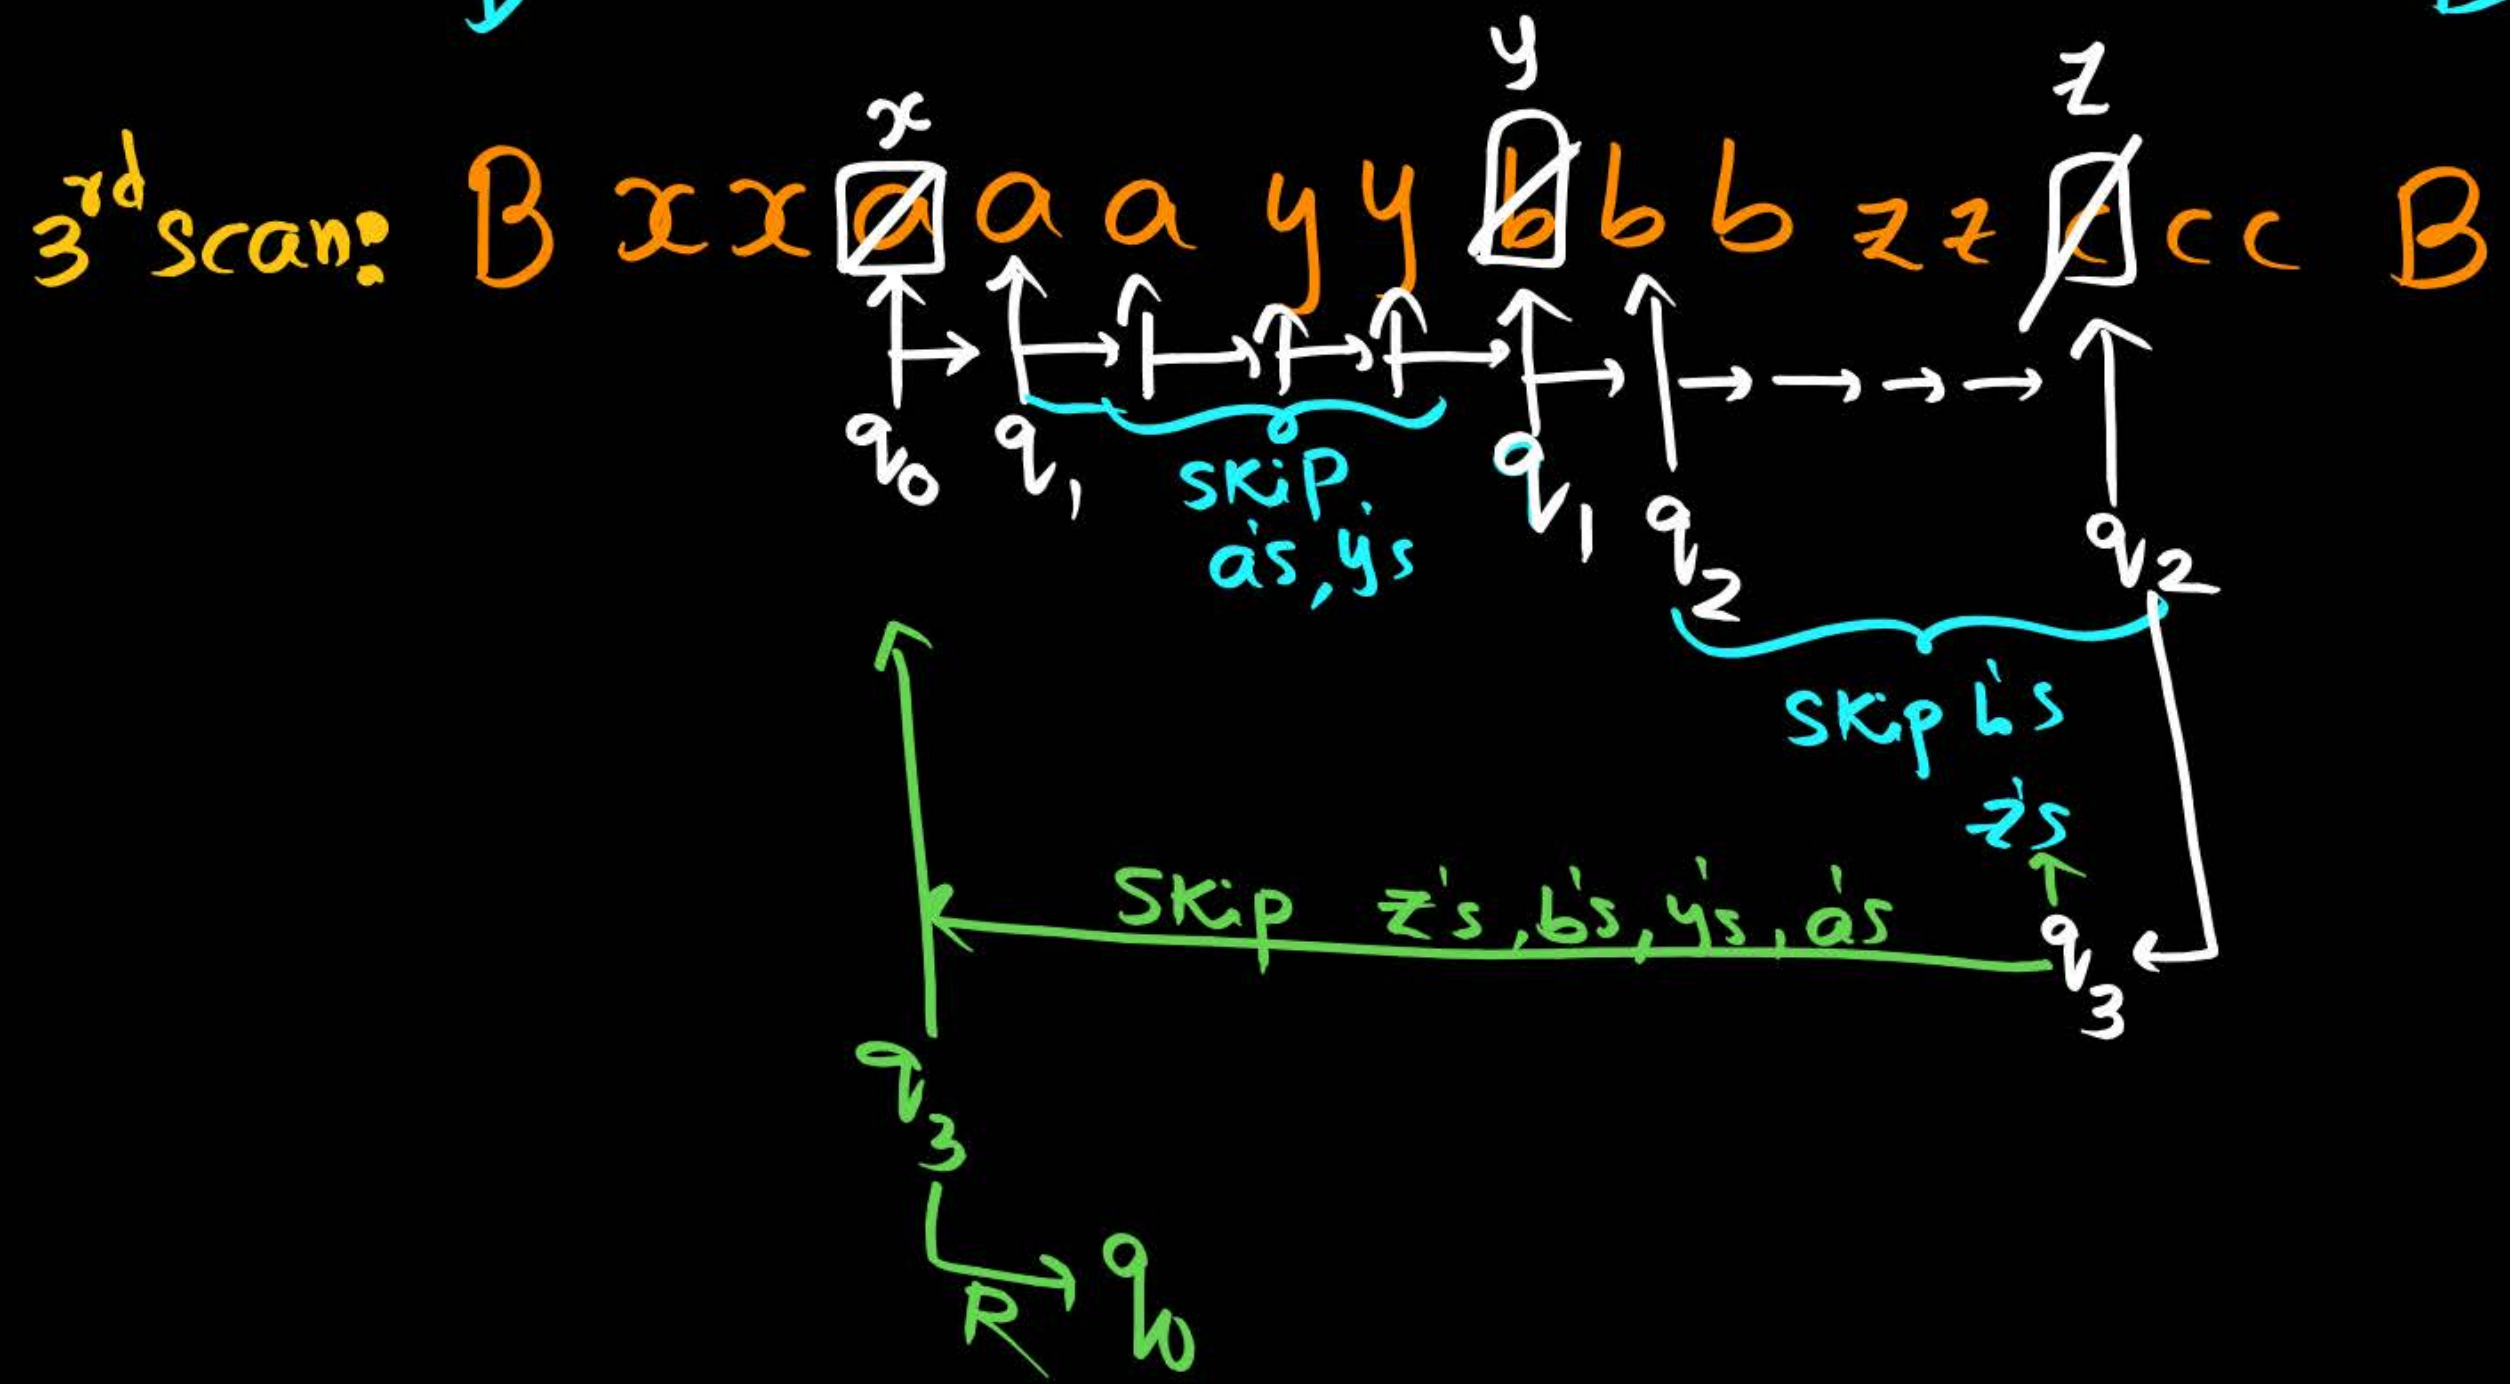 x y z
3rd scan: B x x a a a y y b b b z z c c c B
q0 q1 q1 q2 q2
skip
a's, y's
skip b's
z's
skip z's, b's, y's, a's
q3
q3
R q0